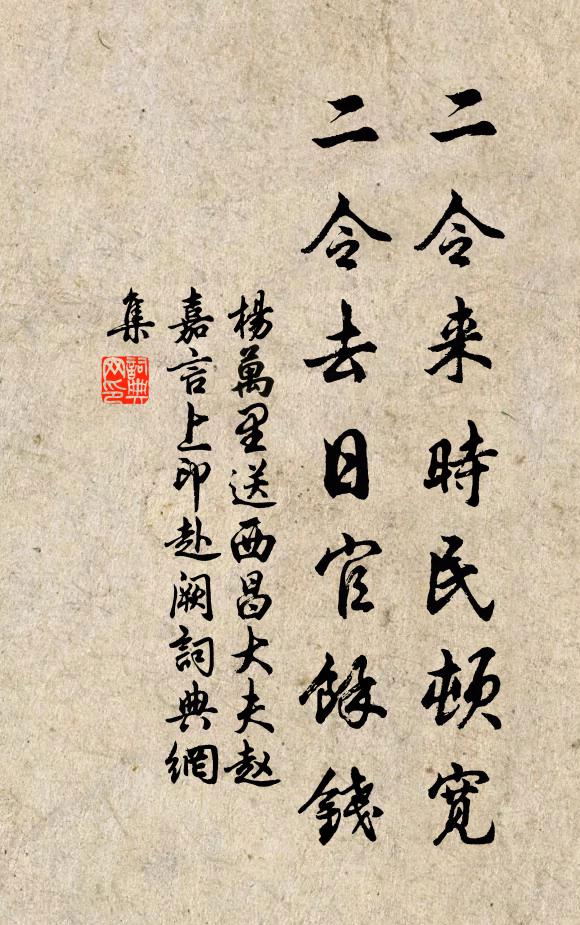 二令来時民頓寬
二令去日官餘錢
楊萬里送西昌大夫赵
嘉言上印赴阙詞典網
集
詞典
网印